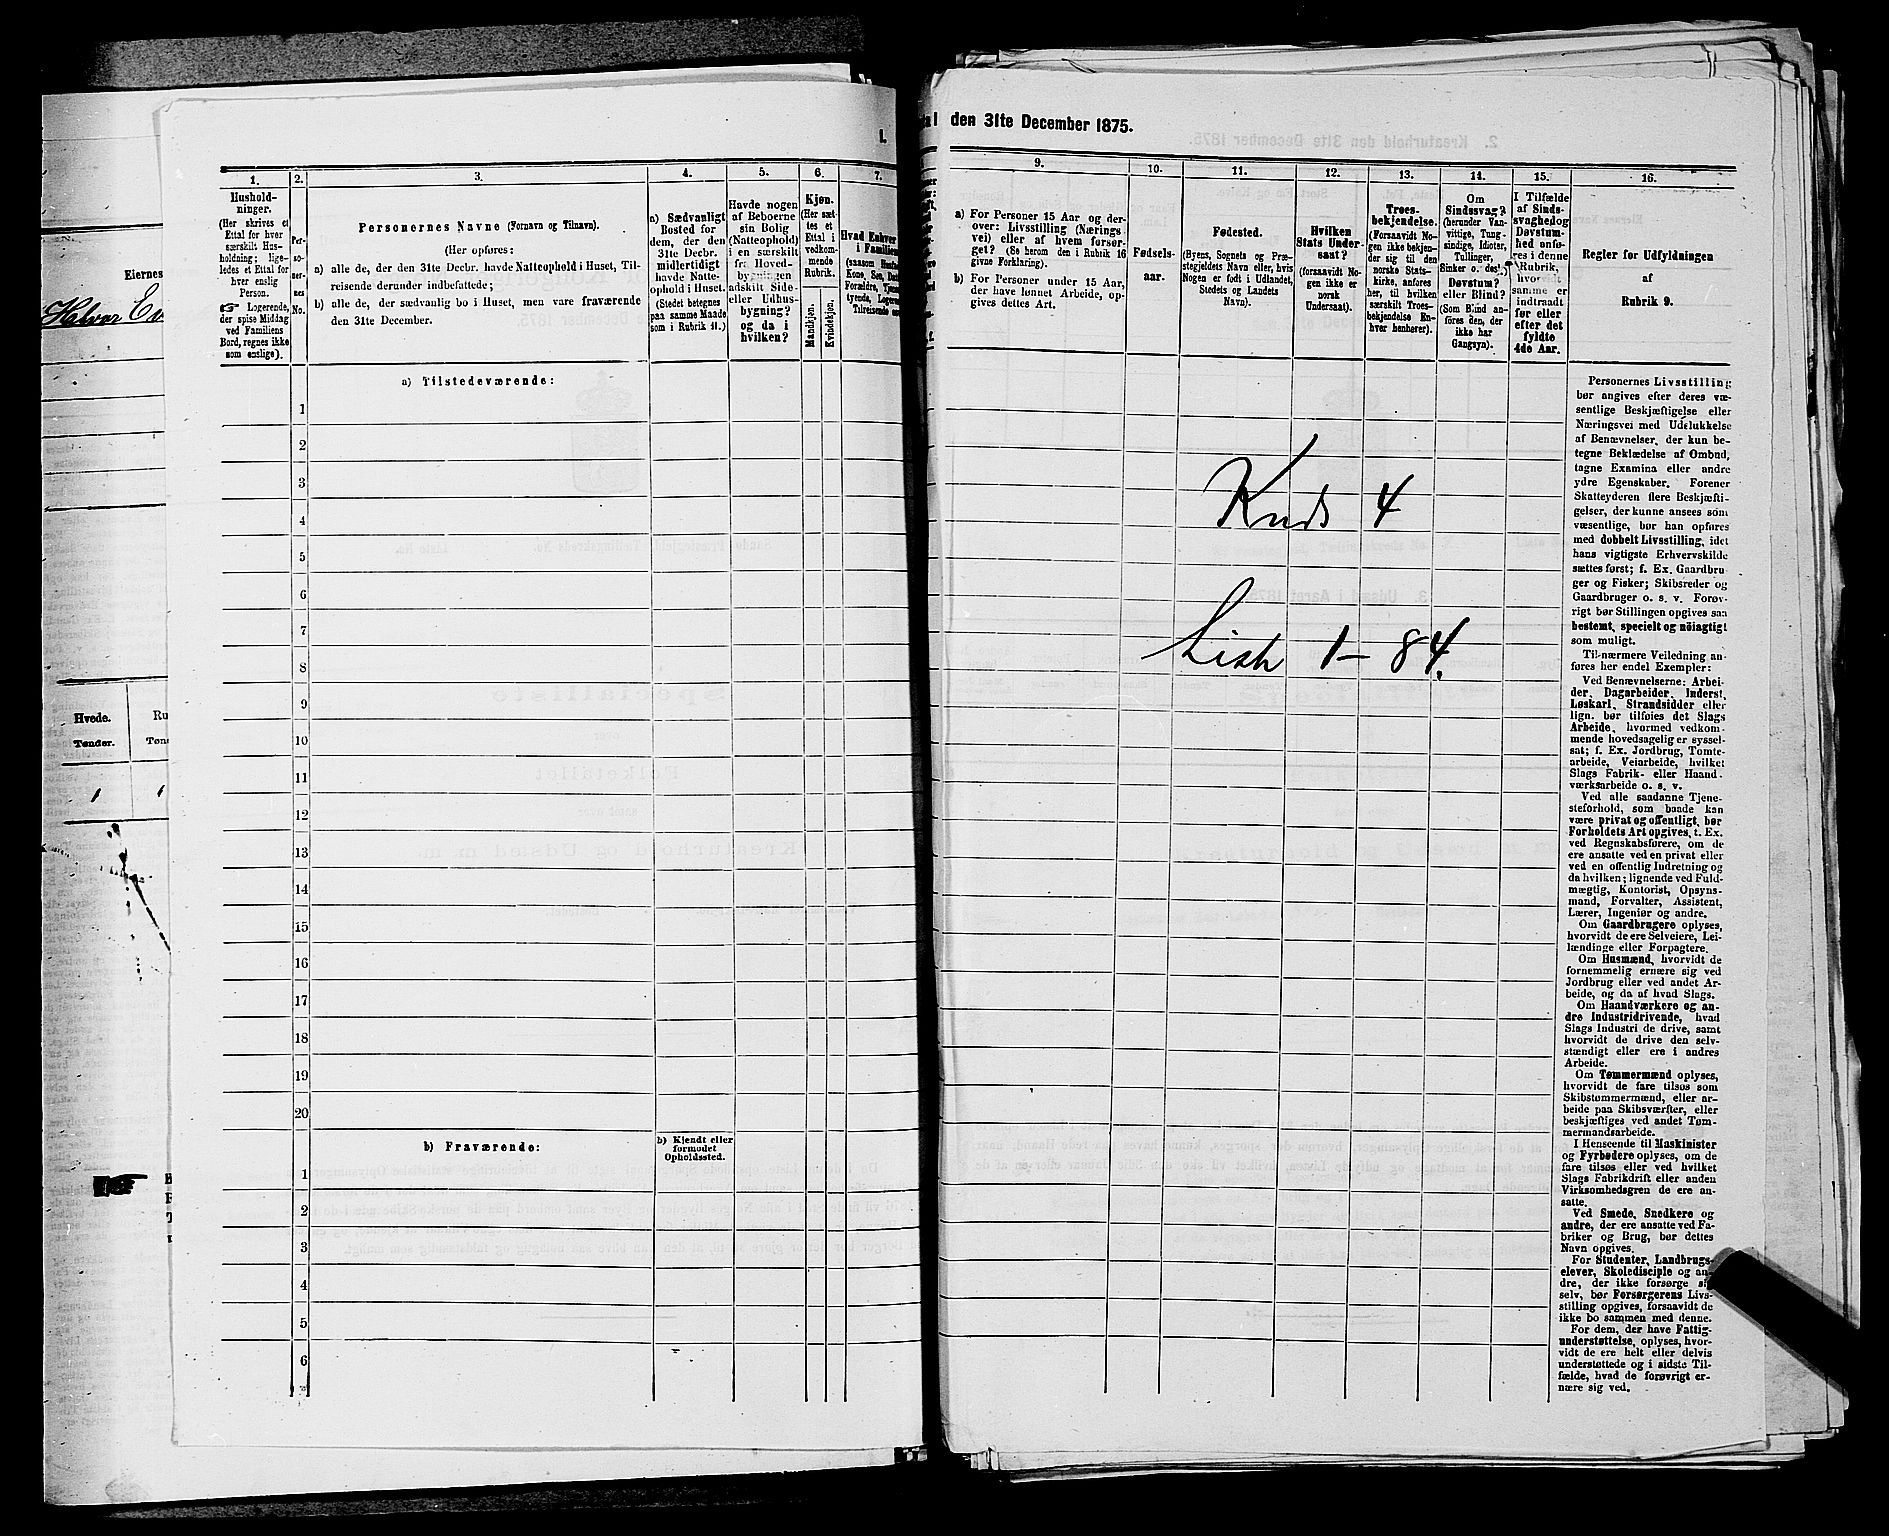 Eiernes
Halvor
Hvede.
Tønder.
1
1
1.
den 31te December 1875.
1.
Hushold-
ninger.
(Her skrives et
Ettal for hver
særskilt Hus-
holdning; lige-
ledes et Ettal for
hver enslig
Person.
☞ Logerende,
der spise Middag
ved Familiens
Bord, regnes ikke
som enslige).
2.
Per-
so-
ner-
nes
No.
3.
Personernes Navne (Fornavn og Tilnavn).
(Her opføres:
a) alle de, der den 31te Decbr. havde Natteophold i Huset, Til-
reisende derunder indbefattede;
b) alle de, der sædvanlig bo i Huset, men vare fraværende
den 31te December.
4.
a) Sædvanligt
Bosted for
dem, der den
31te Decbr.
midlertidigt
havde Natte-
ophold i Huset.
(Stedet betegnes
paa samme Maade
som i Rubrik 11.)
5.
Havde nogen
af Beboerne
sin Bolig
(Natteophold)
i en særskilt
fra Hoved-
bygningen
adskilt Side-
eller Udhus-
bygning?
og da i
hvilken?
6.
Kjøn.
(Her sæt-
tes et
Ettal i
vedkom-
mende
Rubrik.
Mandkjøn.
Kvindekjøn.
7.
Hvad Enhver
i Familien
(saasom
Kone, Søn,
Forældre,
tyende,
Tilreisende
a) Tilstedeværende:
1
2
3
4
5
6
7
8
9
10
11
12
13
14
15
16
17
18
19
20
b) Fraværende:
b) Kjendt eller
formodet
Opholdssted.
1
2
3
4
5
6
9.
a) For Personer 15 Aar og der-
over: Livsstilling (Nærings
vei) eller af hvem forsør-
get? (Se herom den i Rubrik 16
givne Forklaring).
b) For Personer under 15 Aar,
der have lønnet Arbeide, op-
gives dettes Art.
10.
Fødsels-
aar.
11.
Fødested.
(Byens, Sognets og Præ-
stegjeldets Navn eller, hvis
Nogen er født i Udlandet,
Stedets og Landets
Navn).
12.
Hvilken
Stats Under-
saat?
(forsaavidt No-
gen ikke er
norsk
Undersaat).
13.
Troes-
bekjendelse.
(Forsaavidt No-
gen ikke bekjen-
der sig til den
norske Stats-
kirke, anføres
her, til hvilken
særskilt Troes-
bekjendelse En-
hver henhører).
14.
Om
Sindssvag?
(herunder Van-
vittige, Tung-
sindige, Idioter,
Tullinger,
Sinker o. desl.)
Døvstum?
eller Blind?
(Som Blind an-
føres den, der
ikke har
Gangsyn).
15.
I Tilfælde
af Sinds-
svaghed og
Døvstum-
hed anfø-
res i denne
Rubrik,
hvorvidt
samme er
indtraadt
før eller
efter det
fyldte
4de Aar.
16.
Regler for Udfyldningen
af
Rubrik 9.
Krds 4
List 1–84.
Personernes Livsstilling
bør angives efter deres væ-
sentlige Beskjæftigelse eller
Næringsvei med Udelukkelse
af Benævnelser, der kun be-
tegne Beklædelse af Ombud,
tagne Examina eller andre
ydre Egenskaber. Forener
Skatteyderen flere Beskjæfti-
gelser, der kunne ansees som
væsentlige, bør han opføres
med dobbelt Livsstilling, idet
hans vigtigste Erhvervskilde
sættes først; f. Ex. Gaardbru-
ger og Fisker; Skibsreder og
Gaardbruger o. s. v. Forøv-
rigt bør Stillingen opgives saa
bestemt, specielt og nøiagtigt
som muligt.
Til nærmere Veiledning an-
føres her endel Exempler:
Ved Benævnelserne: Arbei-
der, Dagarbeider, Inderst,
Løskarl, Strandsidder eller
lign. bør tilføies det Slags
Arbeide, hvormed vedkom-
mende hovedsagelig er syssel-
sat; f. Ex. Jordbrug, Tomte-
arbeide, Veiarbeide, hvilket
Slags Fabrik- eller Haand-
værksarbeide o. s. v.
Ved alle saadanne Tjene-
steforhold, som baade kan
være privat og offentligt, bør
Forholdets Art opgives, t. Ex.
ved Regnskabsførere, om de
ere ansatte ved en privat eller
ved en offentlig Indretning og
da hvilken; lignende ved Fuld-
mægtig, Kontorist, Opsyns-
mand, Forvalter, Assistent,
Lærer, Ingeniør og andre.
Om Gaardbrugere oplyses,
hvorvidt de ere Selveiere, Lei-
lændinge eller Forpagtere.
Om Husmænd, hvorvidt de
fornemmelig ernære sig ved
Jordbrug eller ved andet Ar-
beide, og da af hvad Slags.
Om Haandværkere og an-
dre Industridrivende, hvad
Slags Industri de drive, samt
hvorvidt de drive den selv-
stændigt eller ere i andres
Arbeide.
Om Tømmermænd oplyses,
hvorvidt de fare tilsøs som
Skibstømmermænd, eller ar-
beide paa Skibsværfter, eller
beskjæftiges ved andet Tøm-
mermandsarbeide.
I Henseende til Maskinister
og Fyrbødere oplyses, om de
fare tilsøs eller ved hvilket
Slags Fabrikdrift eller anden
Virksomhedsgren de ere an-
satte.
Ved Smede, Snedkere og
andre, der ere ansatte ved Fa-
briker og Brug, bør dettes
Navn opgives.
For Studenter, Landbrugs-
elever, Skoledisciple og an-
dre, der ikke forsørge sig
selv, bør Forsørgerens Livs-
stilling opgives, forsaavidt de
ikke bo sammen med denne.
For dem, der have Fattig-
understøttelse, oplyses, hvor-
vidt de ere helt eller delvis
understøttede og i sidste Til-
fælde, hvad de forøvrigt er-
nære sig ved.